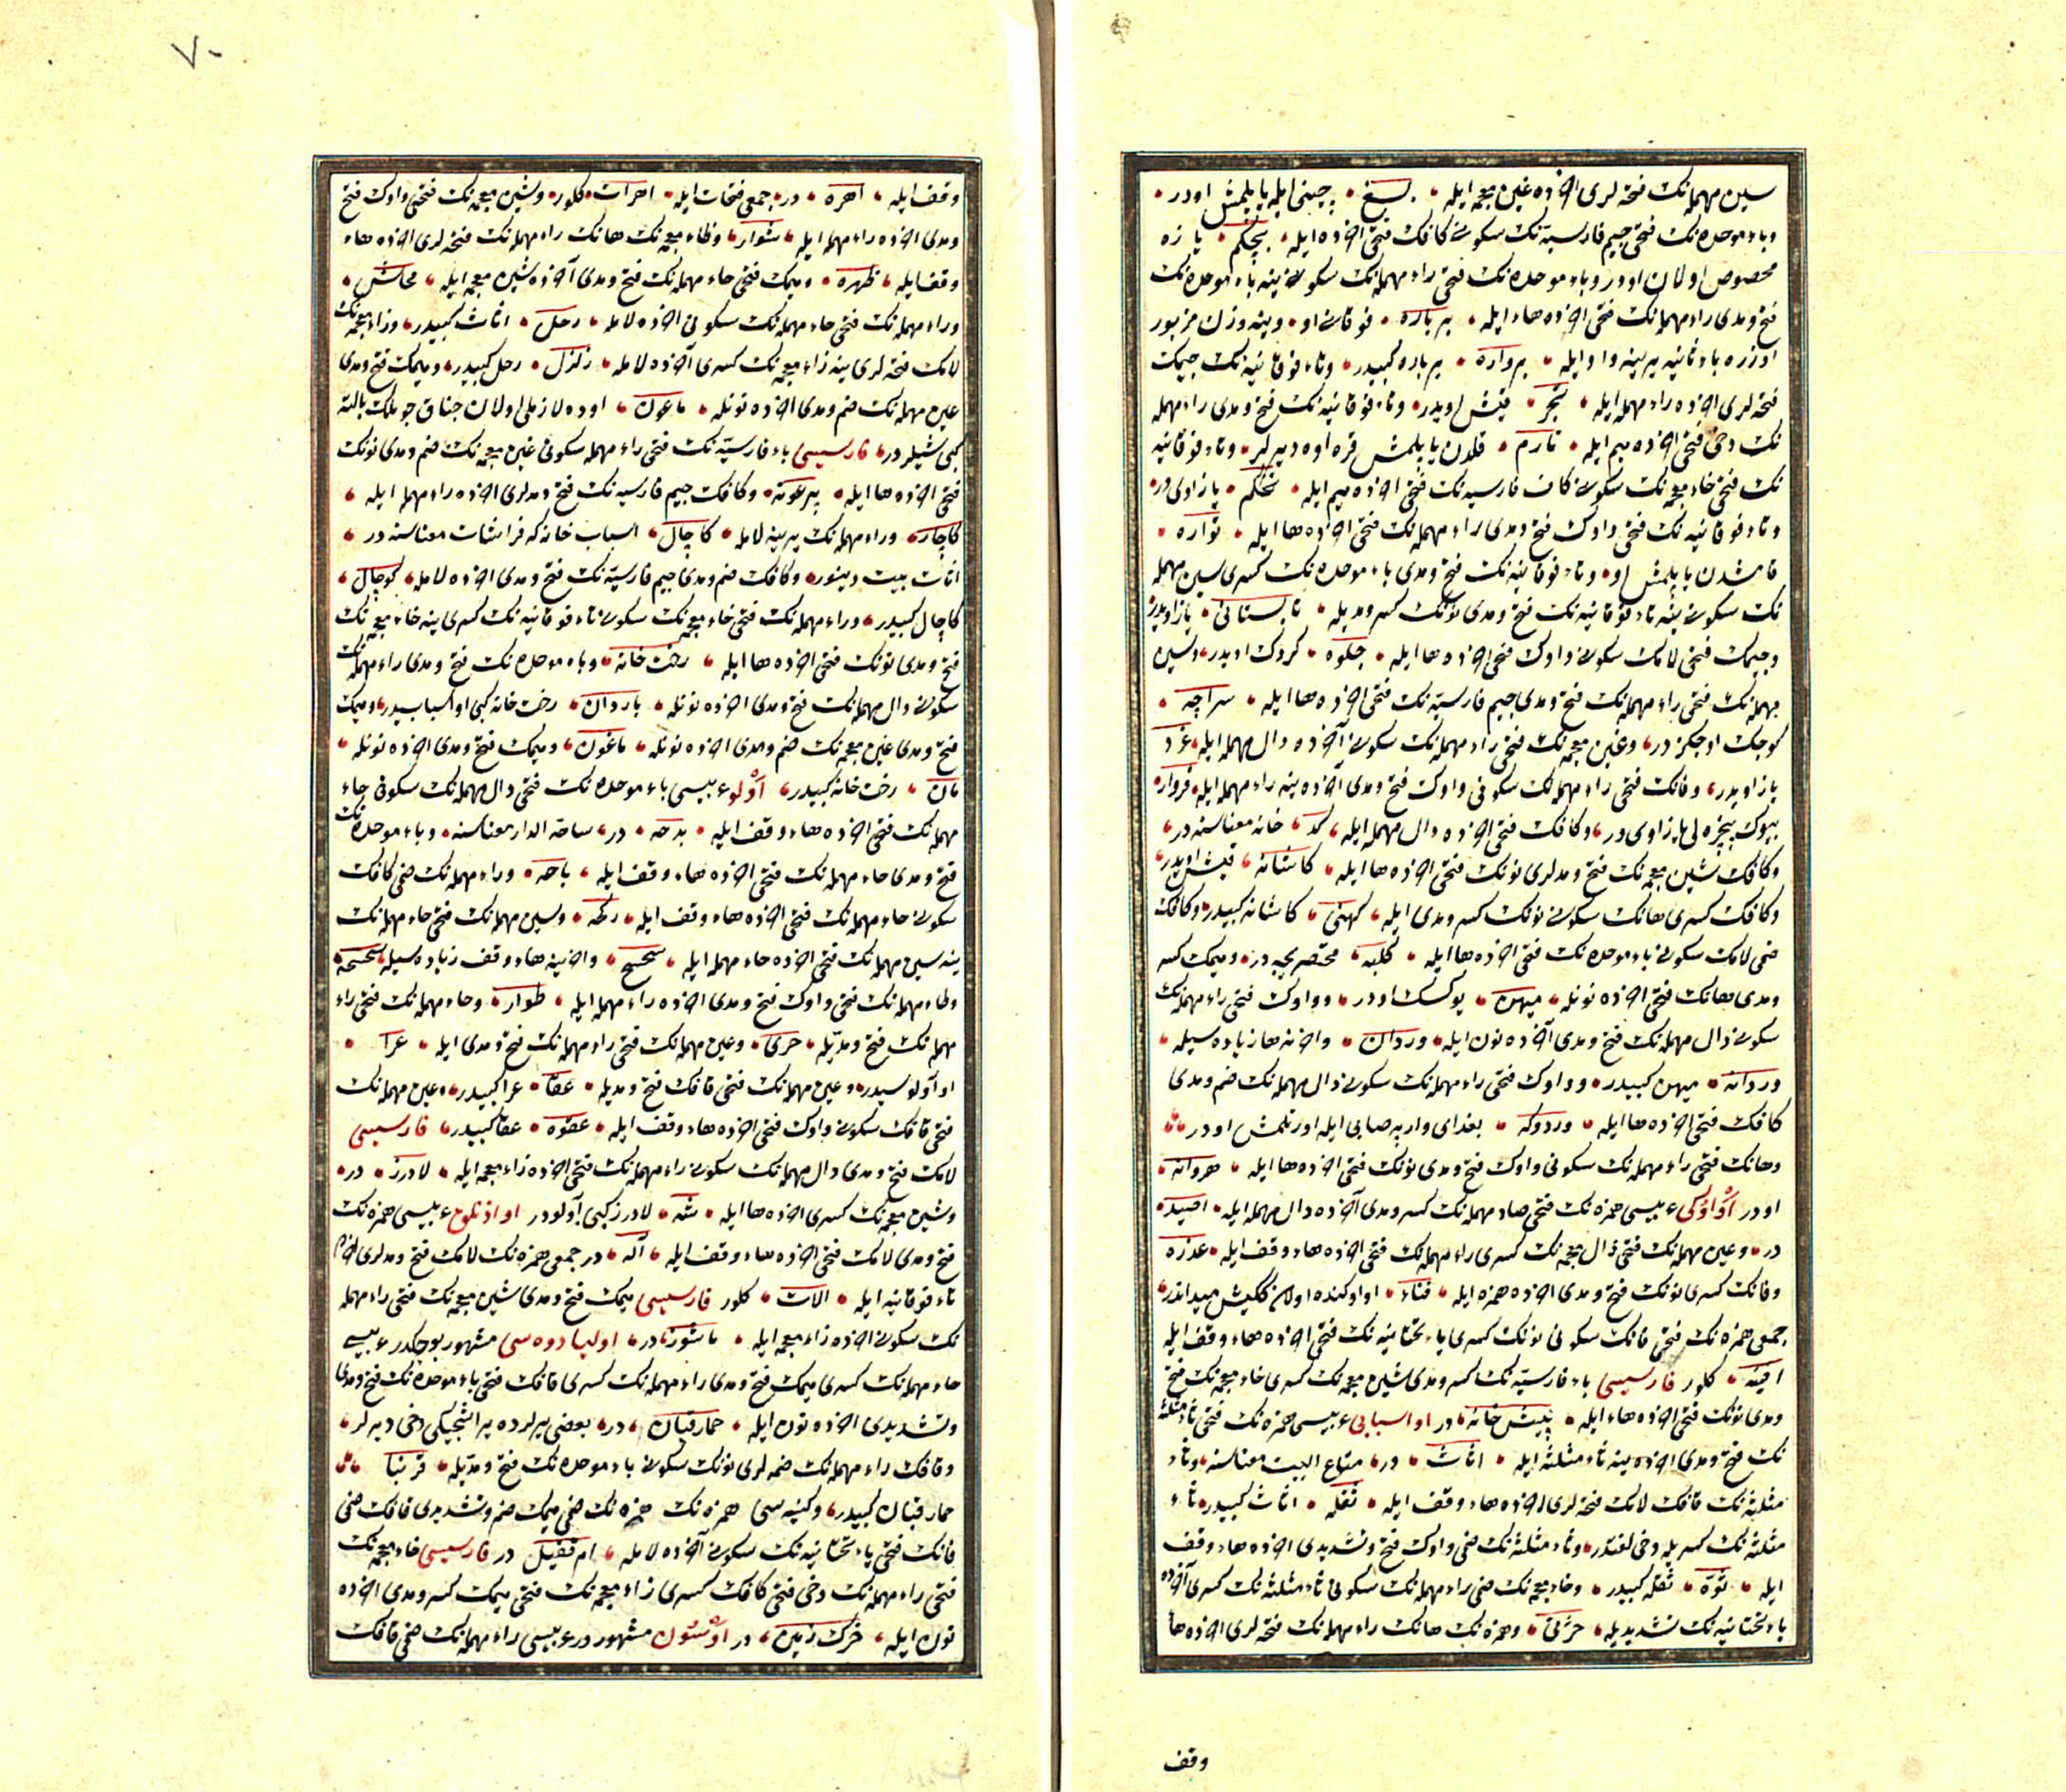 سین مهمله‌نک فتحه لری اخرده غین معجمه ایله بسغ پرچینی ایله یاپلمش اودر
وباء موحده‌نک فتحی جیم فارسیه‌نک سکونی کافک فتحی اخرده میم ایله بجکم یازه
مخصوص اولان اودر وباء موحده‌نک فتحی راء مهمله‌نک سکونی ینه باء موحده‌نک
فتح ومدی راء مهمله‌نک فتحی اخرده هاء ایله برباره فوقانی او وینه وزن مزبور
اوزره باء ثانیه یرینه واو ایله برواره برباره کبیدر وتاء فوقانیه‌نک جیمک
فتحه لری اخرده راء مهمله ایله تجر قیش اویدر وتاء فوقانیه‌نک فتح ومدی راء مهمله
نک دخی فتحی اخرده میم ایله تارم قلدن یاپلمش قره اوه دیرلر وتاء فوقانیه
نک فتحی خاء معجمه‌نک سکونی کاف فارسیه‌نک فتحی اخرده میم ایله تخکم یاز اوی در
وتاء فوقانیه‌نک فتحی واوک فتح ومدی راء مهمله‌نک فتحی اخرده ها ایله تواره
قامشدن یاپلمش او وتاء فوقانیه‌نک فتح ومدی باء موحده‌نک کسری سین مهمله
نک سکونی ینه تاء فوقانیه‌نک فتح ومدی نونک کسر ومدیله تابستانی یاز اویدر
وجیمک فتحی لامک سکونی واوک فتحی اخرده ها ایله جلوه کردک اویدر وسین
مهمله‌نک فتحی راء مهمله‌نک فتح ومدی جیم فارسیه‌نک فتحی اخرده ها ایله سراچه
کوجک اوجکز در وغین معجمه‌نک فتحی راء مهمله‌نک سکونی آخرده دال مهمله ایله غرد
یاز اویدر وفانک فتحی راء مهمله‌نک سکونی واوک فتح ومدی آخرده ینه راء مهمله ایله فروار
بیوک پنجره لی یاز اوی در وکافک فتحی اخرده دال مهمله ایله کد خانه معناسنه در
وکافک شین معجمه‌نک فتح ومدلری نونک فتحی اخرده ها ایله کاشانه قیش اویدر
وکافک کسری هانک سکونی نونک کسر ومدی ایله کهنی کاشانه کبیدر وکافک
ضمی لامک سکونی باء موحده‌نک فتحی اخرده ها ایله کلبه مختصر یجه در ومیمک کسر
ومدی هانک فتحی اخرده نونله میهن یوکسک اودر وواوک فتحی راء مهمله‌نک
سکونی دال مهمله‌نک فتح ومدی آخرده نون ایله وردان واخرنه ها زیاده سیله
وردانه میهن کبیدر وواوک فتحی راء مهمله‌نک سکونی دال مهمله‌نک ضم ومدی
کافک فتحی اخرده ها ایله وردوکه بغدای واربه صابی ایله اورتلمش اودر
وهانک فتحی راء مهمله‌نک سکونی واوک فتح ومدی نونک فتحی اخرده ها ایله هروانه
اودر او اوکی عربیسی همزه‌نک فتحی صاد مهمله‌نک کسر ومدی آخرده دال مهمله ایله اصید
در وعین مهمله‌نک فتحی ذال معجمه‌نک کسری راء مهمله‌نک فتحی اخرده هاء وقف ایله عذره
وفانک کسری نونک فتح ومدی اخرده همزه ایله فناء او اوکنده اولان کنیش میداندر
جمعی همزه‌نک فتحی فانک سکونی نونک کسری یاء تحتانیه‌نک فتحی اخرده هاء وقف ایله
افنیه کلور فارسیسی باء فارسیه‌نک کسر ومدی شین معجمه‌نک کسری خاء معجمه‌نک فتح
ومدی نونک فتحی اخرده هاء ایله پیش خانه در او اسبابی عربیسی همزه‌نک فتحی ثاء مثلثه
نک فتح ومدی اخرده ینه ثاء مثلثه ایله اثاث در متاع البیت معناسنه وثاء
مثلثه‌نک قافک لامک فتحه لری اخرده هاء وقف ایله ثقله اثاث کبیدر ثاء
مثلثه‌نک کسریله دخی لغتدر وثاء مثلثه‌نک ضمی واوک فتح وتشدیدی اخرده هاء وقف
ایله ثوّه ثقله کبیدر وخاء معجمه‌نک ضمی راء مهمله‌نک سکونی ثاء مثلثه‌نک کسری آخرده
یاء تحتانیه‌نک تشدیدیله خرثی وهمزه‌نک هانک راء مهمله‌نک فتحه لری اخرده ها
وقف
٧٠
وقف ایله اهره در جمعی فتحات ایله اهرات کلور وشین معجمه‌نک فتحی واوک فتح
ومدی اخرده راء مهمله ایله شوار وظاء معجمه‌نک هانک راء مهمله‌نک فتحه لری اخرده هاء
وقف ایله ظهره ومیمک فتحی حاء مهمله‌نک فتح ومدی آخرده شین معجمه ایله محاش
وراء مهمله‌نک فتحی حاء مهمله‌نک سکونی اخرده لامله رحل اثاث کبیدر وزاء معجمه‌نک
لامک فتحه لری ینه زاء معجمه‌نک کسری آخرده لامله زلزل رحل کبیدر ومیمک فتح ومدی
عین مهمله‌نک ضم ومدی اخرده نونله ماعون اوده لازملی اولان چناق چوملک بالته
کبی شیلردر فارسیسی باء فارسیه‌نک فتحی راء مهمله سکونی غین معجمه‌نک ضم ومدی نونک
فتحی اخرده ها ایله پرغونه وکافک جیم فارسیه‌نک فتح ومدلری اخرده راء مهمله ایله
کاچار وراء مهمله‌نک یرینه لامله کاچال اسباب خانه که فراشات معناسنه در
اثاث بیت دینور وکافک ضم ومدی جیم فارسیه‌نک فتح ومدی اخرده لامله کوچال
کاچال کبیدر وراء مهمله‌نک فتحی خاء معجمه‌نک سکونی تاء فوقانیه‌نک کسری ینه خاء معجمه‌نک
فتح ومدی نونک فتحی اخرده ها ایله رخت خانه وباء موحده‌نک فتح ومدی راء مهمله‌نک
سکونی دال مهمله‌نک فتح ومدی اخرده نونله باردان رخت خانه کبی او اسبابیدر ومیمک
فتح ومدی غین معجمه‌نک ضم ومدی اخرده نونله ماغون ومیمک فتح ومدی اخرده نونله
مان رخت خانه کبیدر آولو عربیسی باء موحده‌نک فتحی دال مهمله‌نک سکونی حاء
مهمله‌نک فتحی اخرده هاء وقف ایله بدحه در ساحة الدار معناسنه وباء موحده‌نک
فتح ومدی حاء مهمله‌نک فتحی اخرده هاء وقف ایله باحه وراء مهمله‌نک ضمی کافک
سکونی حاء مهمله‌نک فتحی اخرده هاء وقف ایله رکحه وسین مهمله‌نک فتحی حاء مهمله‌نک
ینه سین مهمله‌نک فتحی اخرده حاء مهمله ایله سحسح واخرینه هاء وقف زیاده سیله سحسحه
وطاء مهمله‌نک فتحی واوک فتح ومدی اخرده راء مهمله ایله طوار وحاء مهمله‌نک فتحی راء
مهمله‌نک فتح ومدیله حری وعین مهمله‌نک فتحی راء مهمله‌نک فتح ومدی ایله عرا
او آولوسیدر وعین مهمله‌نک فتحی قافک فتح ومدیله عقا عرا کبیدر وعین مهمله‌نک
فتحی قافک سکونی واوک فتحی اخرده هاء وقف ایله عقوه عقا کبیدر فارسیسی
لامک فتح ومدی دال مهمله‌نک سکونی راء مهمله‌نک فتحی اخرده زاء معجمه ایله لادرز در
وشین معجمه‌نک کسری اخرده ها ایله شه لادرز کبی آولودر او اذنلوغی عربیسی همزه‌نک
فتح ومدی لامک فتحی اخرده هاء وقف ایله آله در جمعی همزه‌نک لامک فتح ومدلری اخرده
تاء فوقانیه ایله الات کلور فارسیسی میمک فتح ومدی شین معجمه‌نک فتحی راء مهمله
نک سکونی اخرده زاء معجمه ایله ماشورز در اولیا دوه سی مشهور بوجکدر عربیسی
حاء مهمله‌نک کسری میمک فتح ومدی راء مهمله‌نک کسری قافک فتحی باء موحده‌نک فتح ومدی
وتشدیدی اخرده نون ایله حمار قبان در بعضی یرلرده یر اشجکی دخی دیرلر
وقافک راء مهمله‌نک ضمه لری نونک سکونی باء موحده‌نک فتح ومدیله قرنبا
حمار قبان کبیدر وکنیه سی همزه‌نک همزه‌نک ضمی میمک ضم وتشدیدی قافک ضمی
فانک فتحی یاء تحتانیه‌نک سکونی آخرده لامله ام قفیل در فارسیسی خاء معجمه‌نک
فتحی راء مهمله‌نک دخی فتحی کافک کسری زاء معجمه‌نک فتحی میمک کسر ومدی اخرده
نون ایله خرک زمین در اوستون مشهور در عربیسی راء مهمله‌نک ضمی قافک